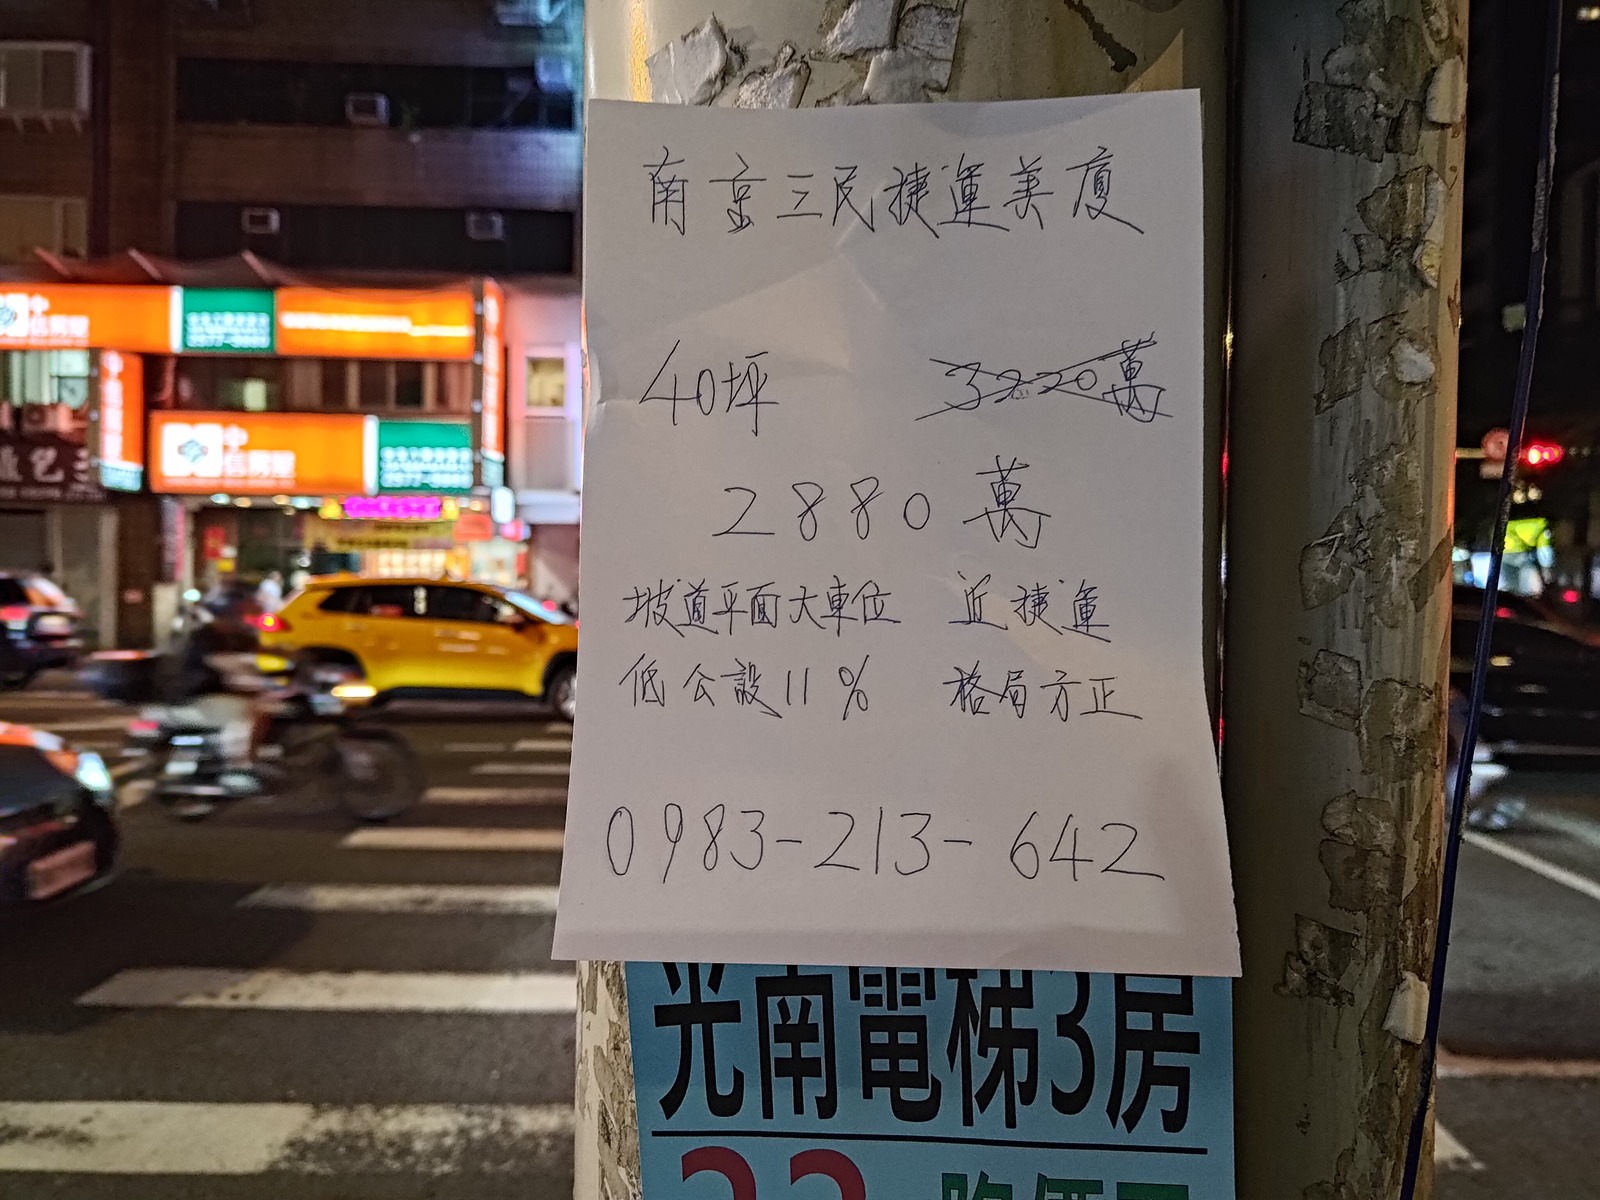 南京三民捷運美廈
40坪 3220萬
2880萬
坡道平面大車位 近捷運
低公設11% 格局方正
0983-213-642
光南電梯3房
中信房屋
中信房屋